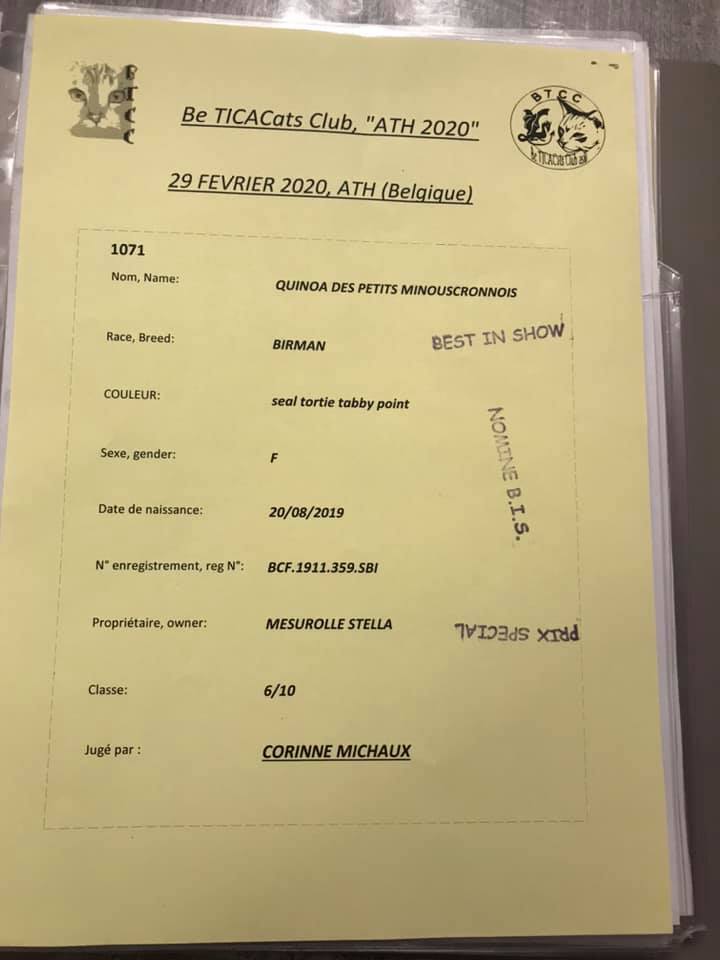 BTCC
Be TICACats Club, "ATH 2020"
BTCC
Be TICACats Club asbl
29 FEVRIER 2020, ATH (Belgique)
1071
Nom, Name: QUINOA DES PETITS MINOUSCRONNOIS
Race, Breed: BIRMAN
BEST IN SHOW
COULEUR: seal tortie tabby point
NOMINE B.I.S.
Sexe, gender: F
Date de naissance: 20/08/2019
N° enregistrement, reg N°: BCF.1911.359.SBI
Propriétaire, owner: MESUROLLE STELLA
PRIX SPECIAL
Classe: 6/10
Jugé par : CORINNE MICHAUX